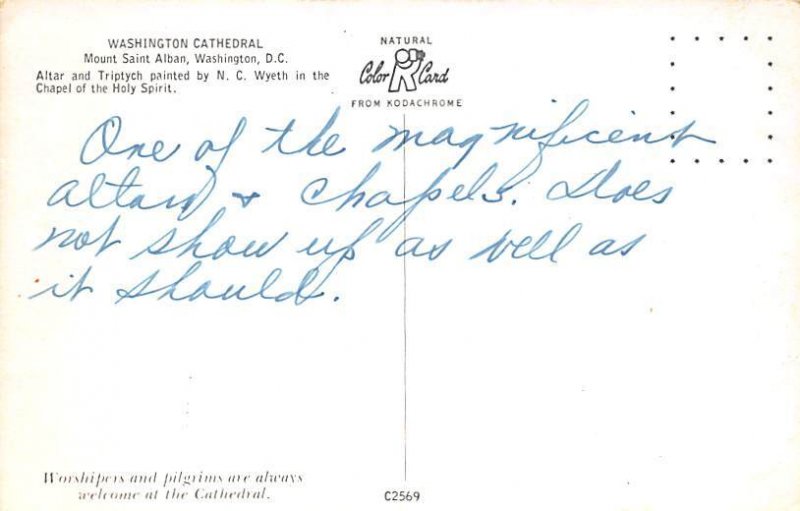 WASHINGTON CATHEDRAL
Mount Saint Alban, Washington, D.C.
Altar and Triptych painted by N. C. Wyeth in the
Chapel of the Holy Spirit.
NATURAL
Color Card
FROM KODACHROME
One of the magnificent
altars + chapels. Does
not show up as well as
it should.
Worshipers and pilgrims are always
welcome at the Cathedral.
C2569